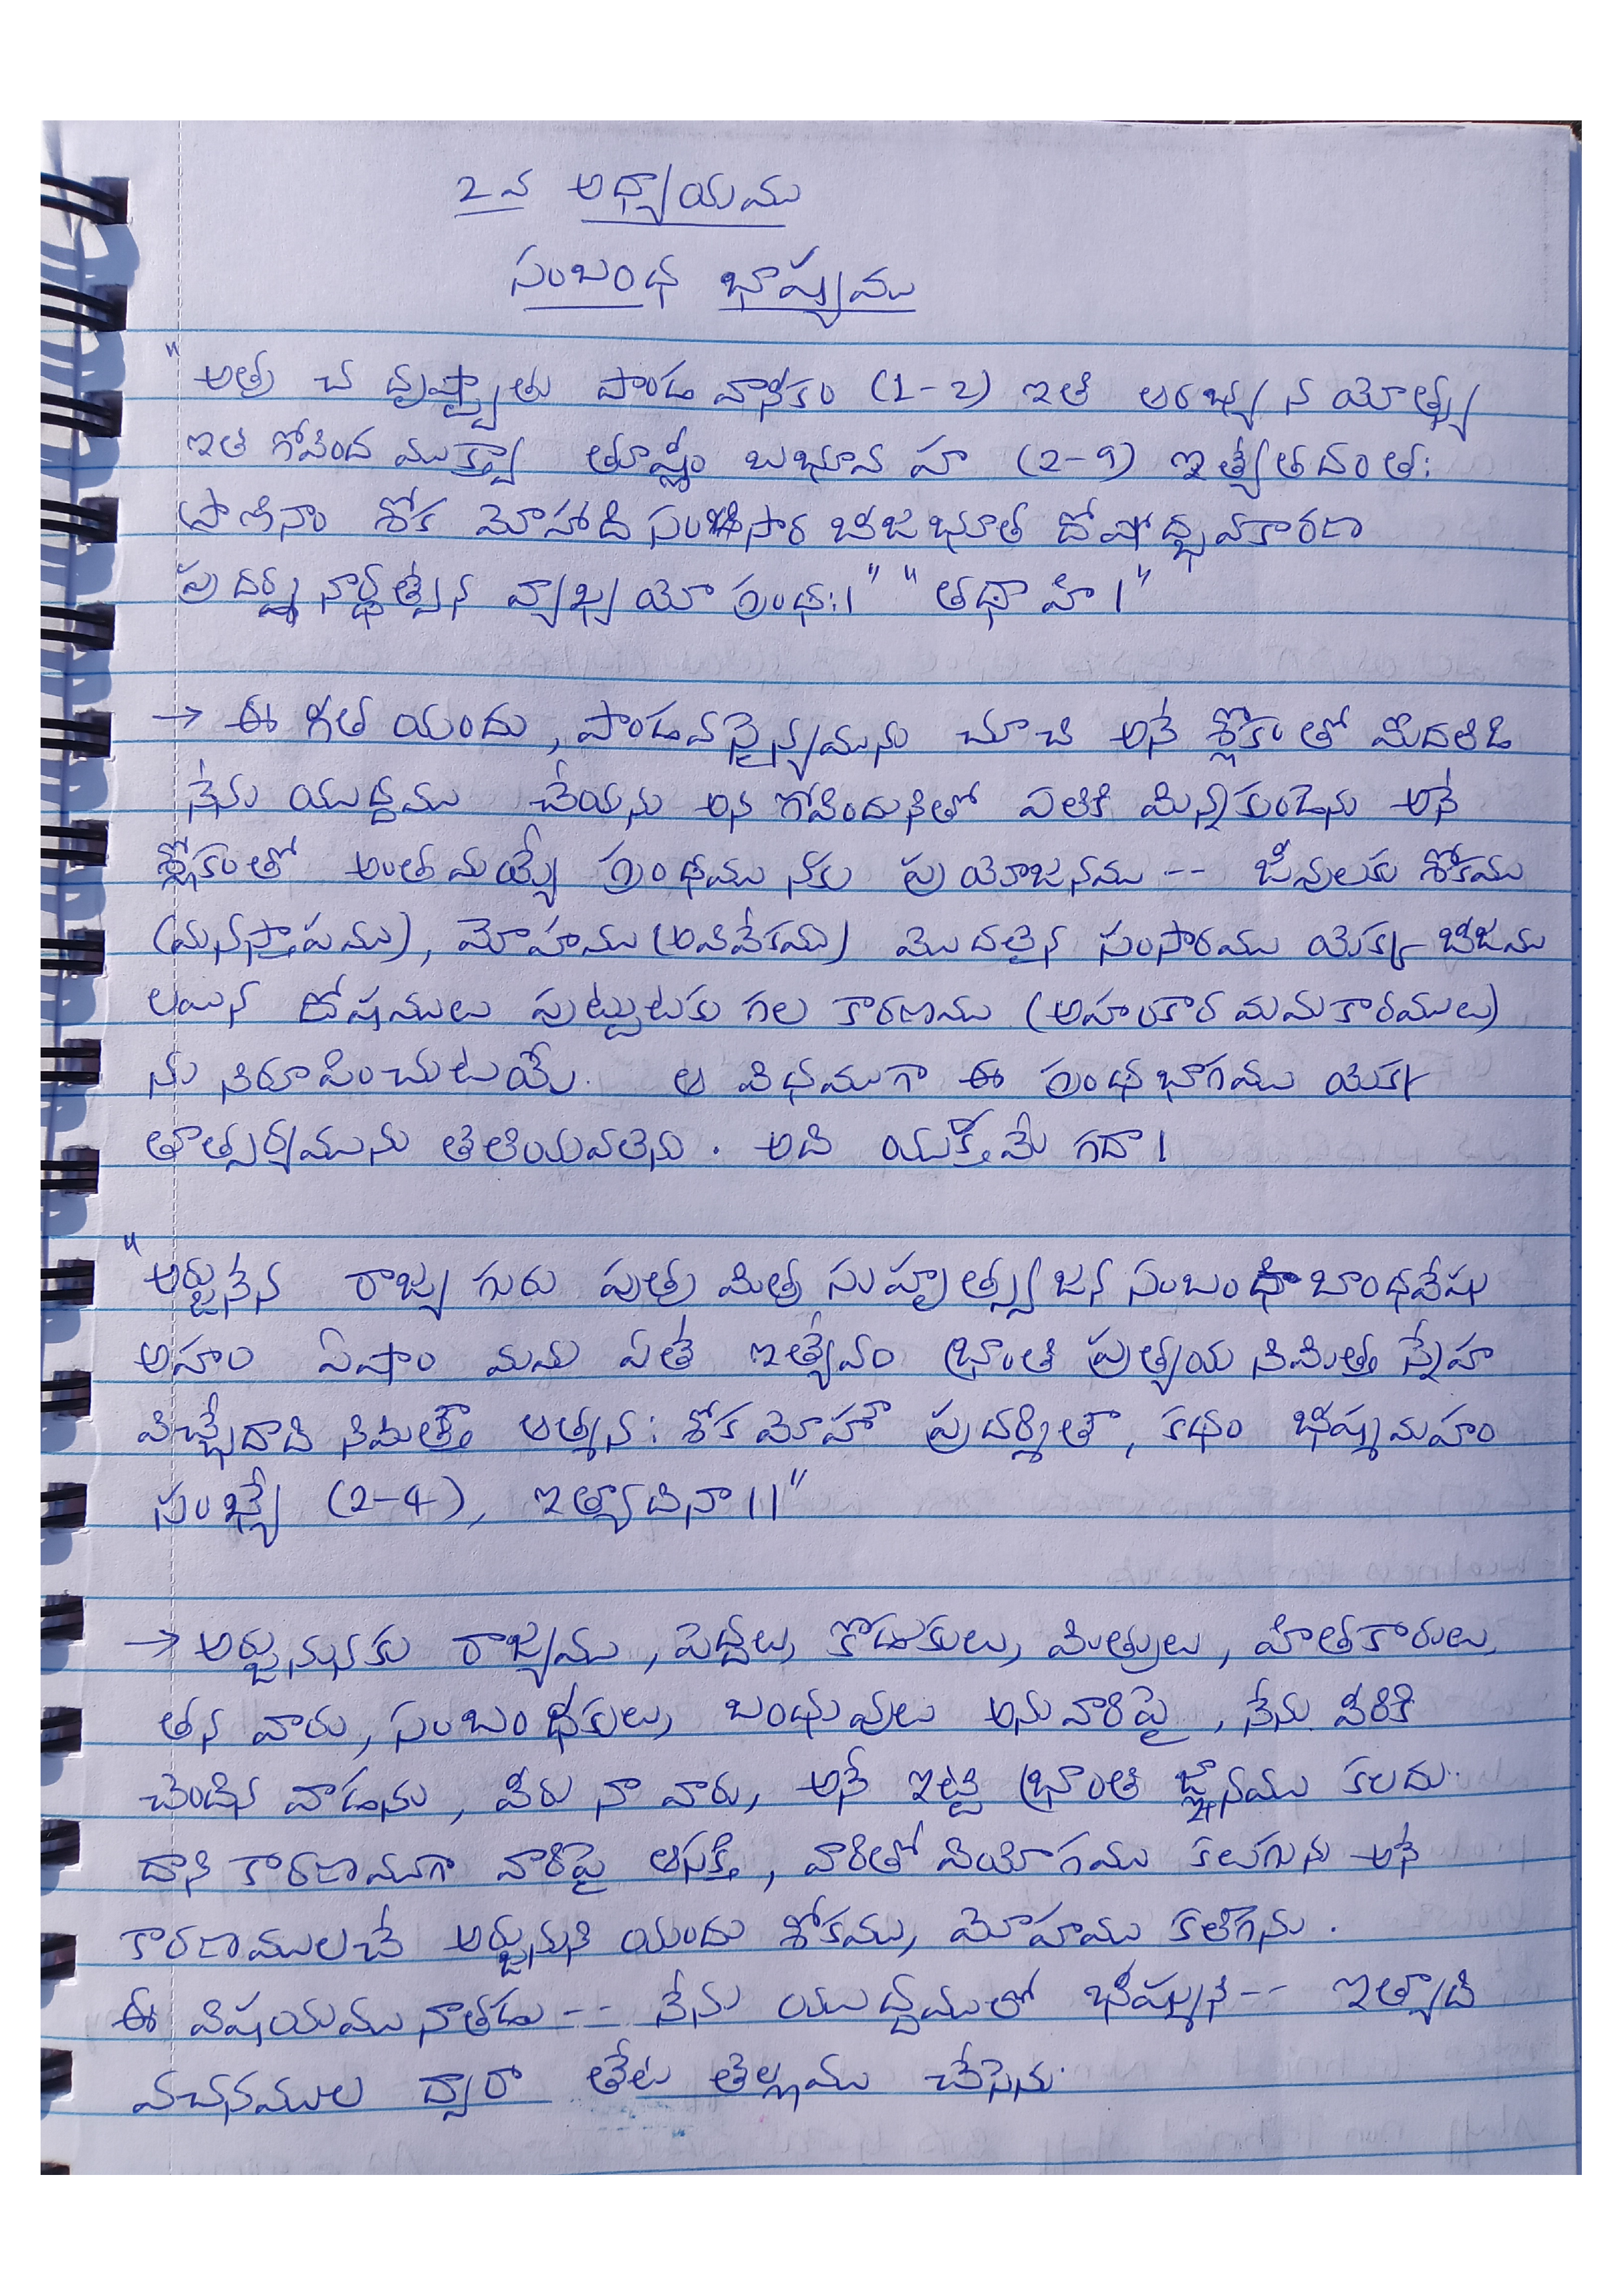 2వ అధ్యాయము
సంబంధ భాష్యము
"అత్ర చ దృష్ట్వాతు పాండవానీకం (1-2) ఇతి ఆరభ్య న యోత్స్య
ఇతి గోవింద ముక్త్వా తూష్ణీం బభూవ హ (2-9) ఇత్యేతదంత:
ప్రాణినాం శోక మోహాది సంసార బీజభూత దోషోద్భవకారణ
ప్రదర్శనార్థత్వేన వ్యాఖ్యయో గ్రంథ:।" "తథా హి।"
→ ఈ గీత యందు, పాండవసైన్యమును చూచి అనే శ్లోకంతో మొదలిడి
నేను యుద్ధము చేయను అని గోవిందునితో పలికి మిన్నకుండెను అనే
శ్లోకంతో అంతమయ్యే గ్రంథము నకు ప్రయోజనము -- జీవులకు శోకము
(మనస్తాపము), మోహము (అవివేకము) మొదలైన సంసారము యొక్క బీజము
లయిన దోషములు పుట్టుటకు గల కారణము (అహంకార మమకారములు)
ను నిరూపించుటయే. ఆ విధముగా ఈ గ్రంథభాగము యొక్క
తాత్పర్యమును తెలియవలెను. అది యుక్తమే గదా।
"అర్జునేన రాజ్య గురు పుత్ర మిత్ర సుహృత్స్వజన సంబంధి బాంధవేషు
అహం ఏషాం మమ ఏతే ఇత్యేవం భ్రాంతి ప్రత్యయ నిమిత్త స్నేహ
విచ్ఛేదాది నిమిత్తౌ ఆత్మన: శోకమోహౌ ప్రదర్శితౌ, కథం భీష్మమహం
సంఖ్యే (2-4), ఇత్యాదినా।।"
→ అర్జునునకు రాజ్యము, పెద్దలు, కొడుకులు, మిత్రులు, హితకారులు,
తన వారు, సంబంధీకులు, బంధువులు అనువారిపై, నేను వీరికి
చెందిన వాడను, వీరు నా వారు, అనే ఇట్టి భ్రాంతి జ్ఞానము కలదు.
దాని కారణముగా వారిపై ఆసక్తి, వారితో వియోగము కలుగును అనే
కారణములచే అర్జునుని యందు శోకము, మోహము కలిగెను.
ఈ విషయము నాతడు -- నేను యుద్ధములో భీష్ముని -- ఇత్యాది
వచనముల ద్వారా తేట తెల్లము చేసెను.